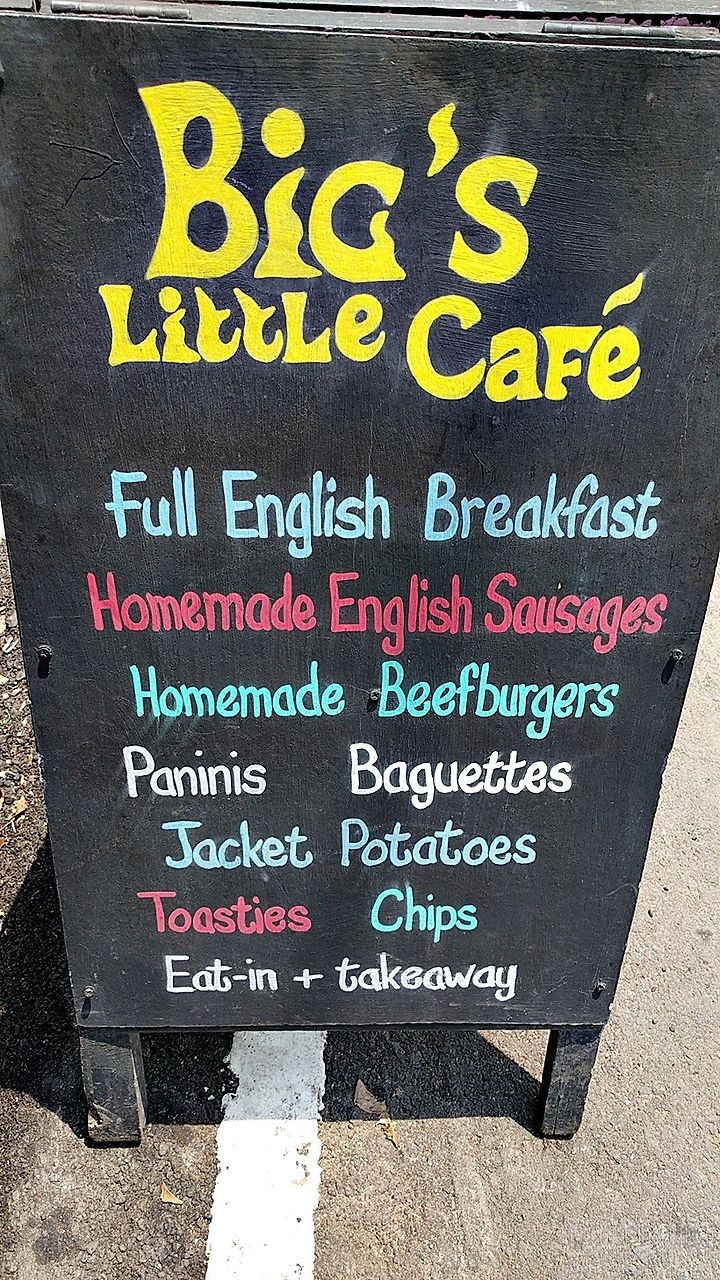 Big's
Little Café
Full English Breakfast
Homemade English Sausages
Homemade Beefburgers
Paninis Baguettes
Jacket Potatoes
Toasties Chips
Eat-in + takeaway